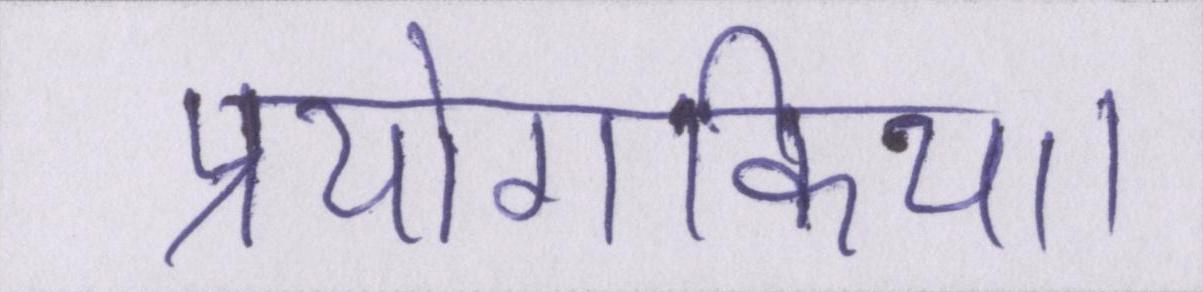 प्रयोगकिया।